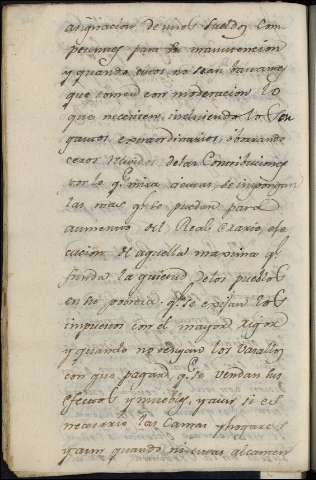 asignacion de unos sueldos com-
petentes para la manutencion
y quando estos no sean bastantes
que tomen con moderacion lo
que necesiten, incluiendo los en
gastos extraordinarios,
de las Contribuciones
que mira a se impongan
las mas q.e se puedan para
aumento del Real Erario, ese
cucion de aquella maxima q.e
funda la quietud de los pueblos
en su pobreza. q.e se exijan los
impuestos con el mayor rigor
y quando no tengan los Vasallos
con que pagar q.e se vendan sus
efectos y muebles, y aun si es
necesario las camas y hogares
y aun quando ni estas alcancen